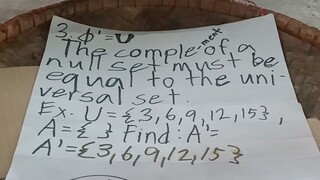 3. ϕ'=U
The complement of a
null set must be
equal to the uni-
versal set.
Ex. U = {3,6,9,12,15},
A = { } Find: A'=
A'={3,6,9,12,15}